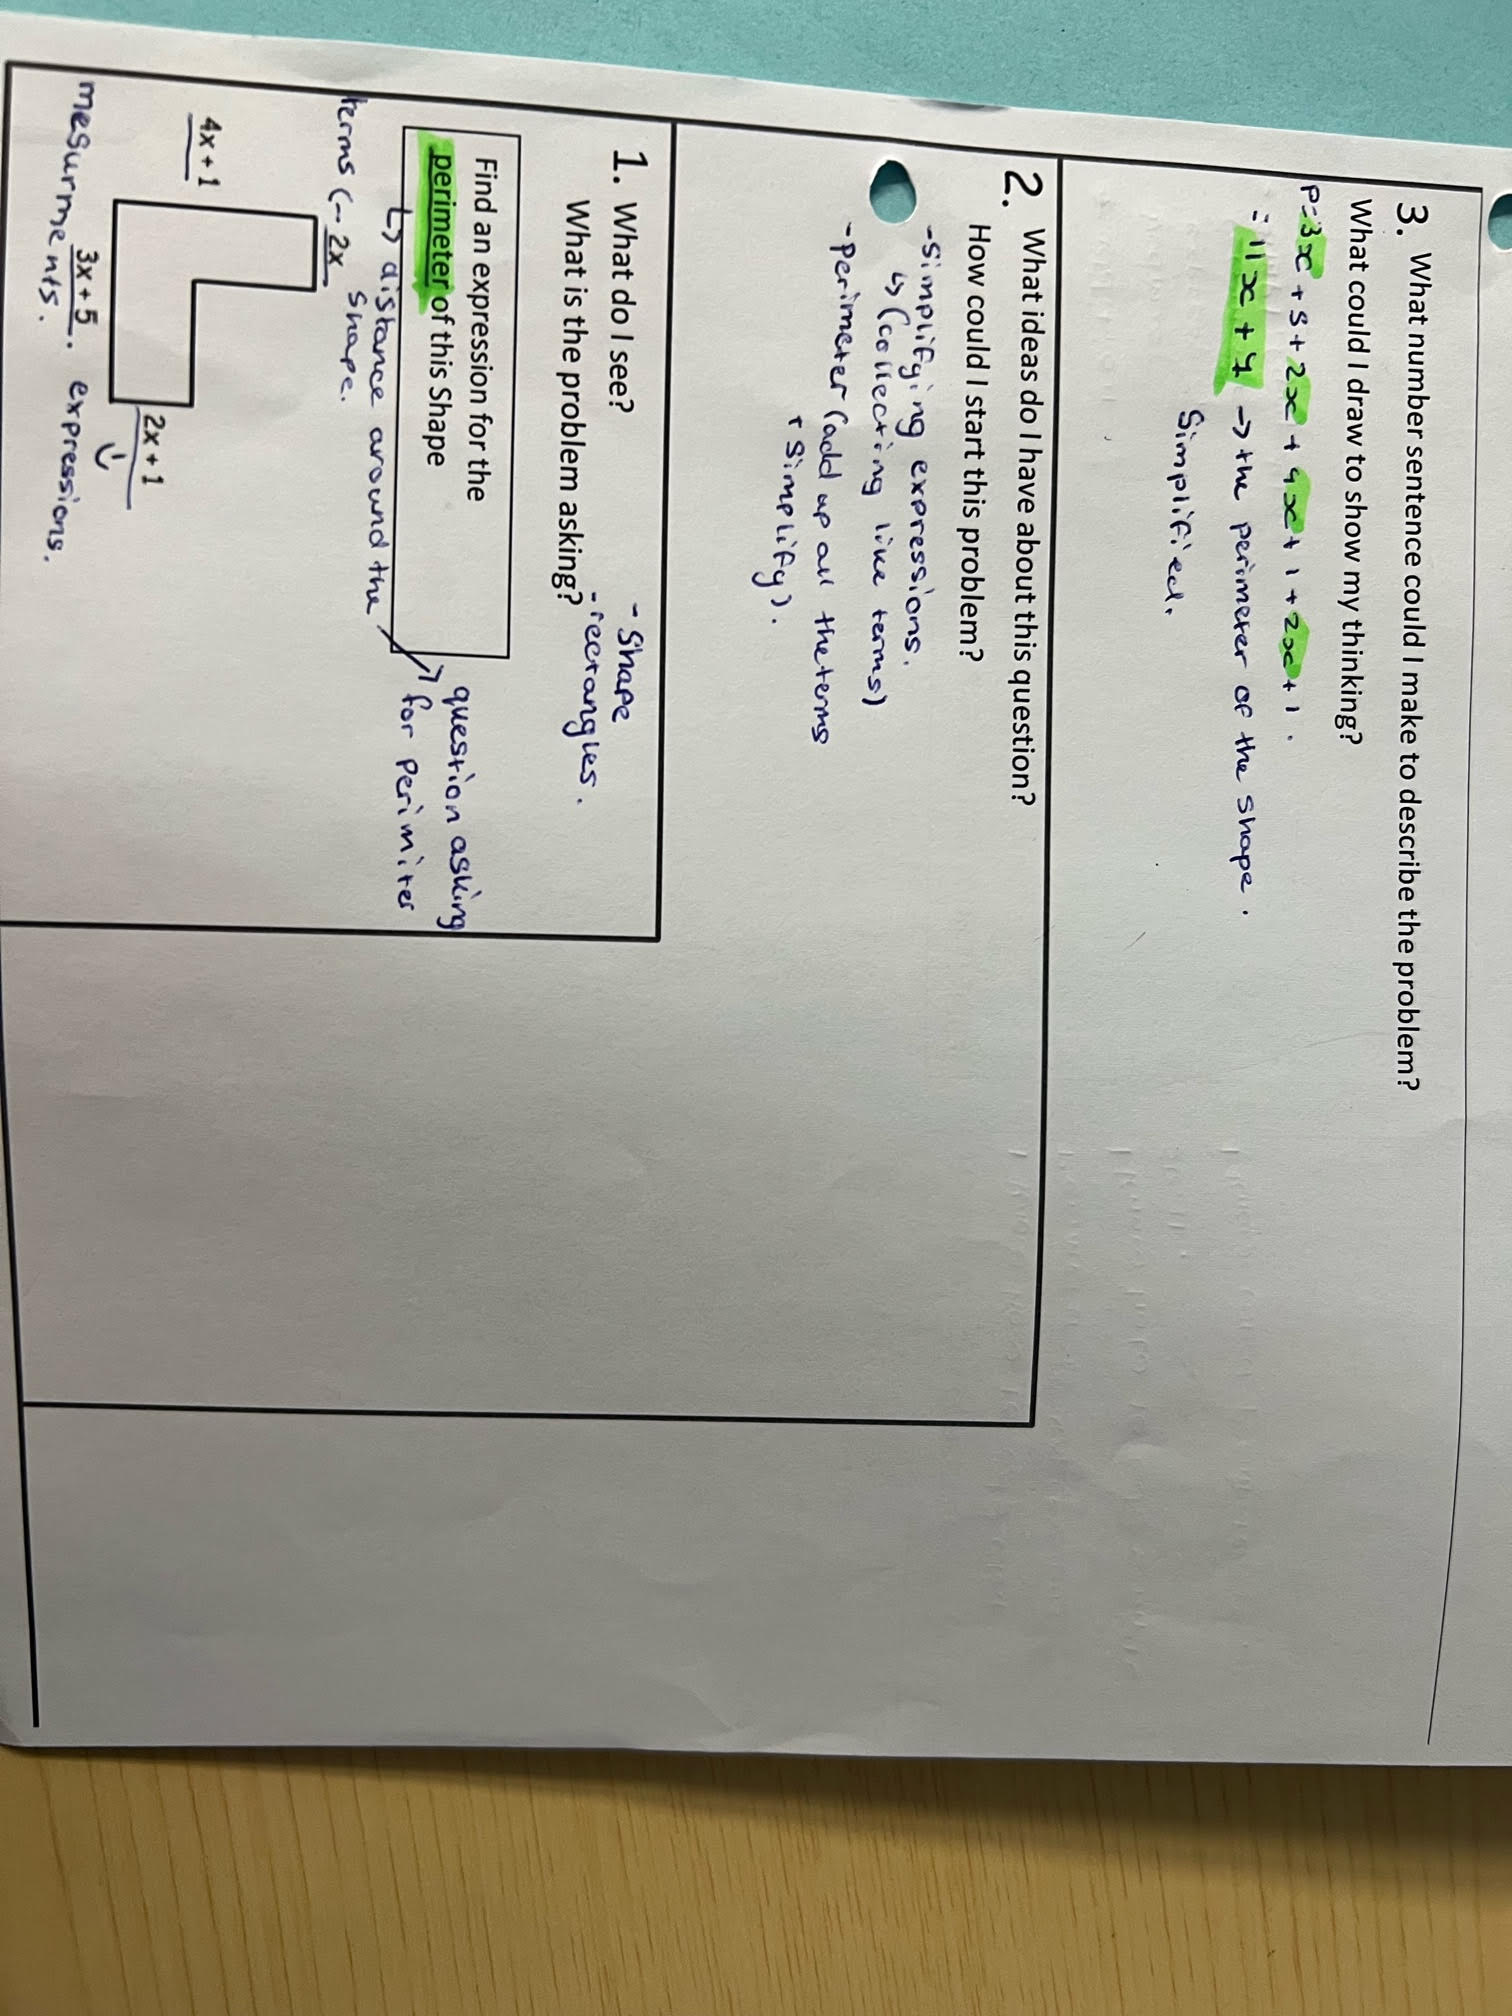 3. What number sentence could I make to describe the problem?
What could I draw to show my thinking?
P=3x + 5 + 2x + 4x + 1 + 2x + 1 .
= 11x + 7 → the perimeter of the shape .
Simplified.
2. What ideas do I have about this question?
How could I start this problem?
-Simplifying expressions.
↳ (collecting like terms)
-perimeter (add up all the terms
+ simplify).
1. What do I see?
- Shape
What is the problem asking?
-rectangles.
Find an expression for the
perimeter of this Shape
question asking
for perimiter
↳ distance around the
shape.
terms ← 2x
4x + 1
2x + 1
3x + 5
expressions.
mesurments.